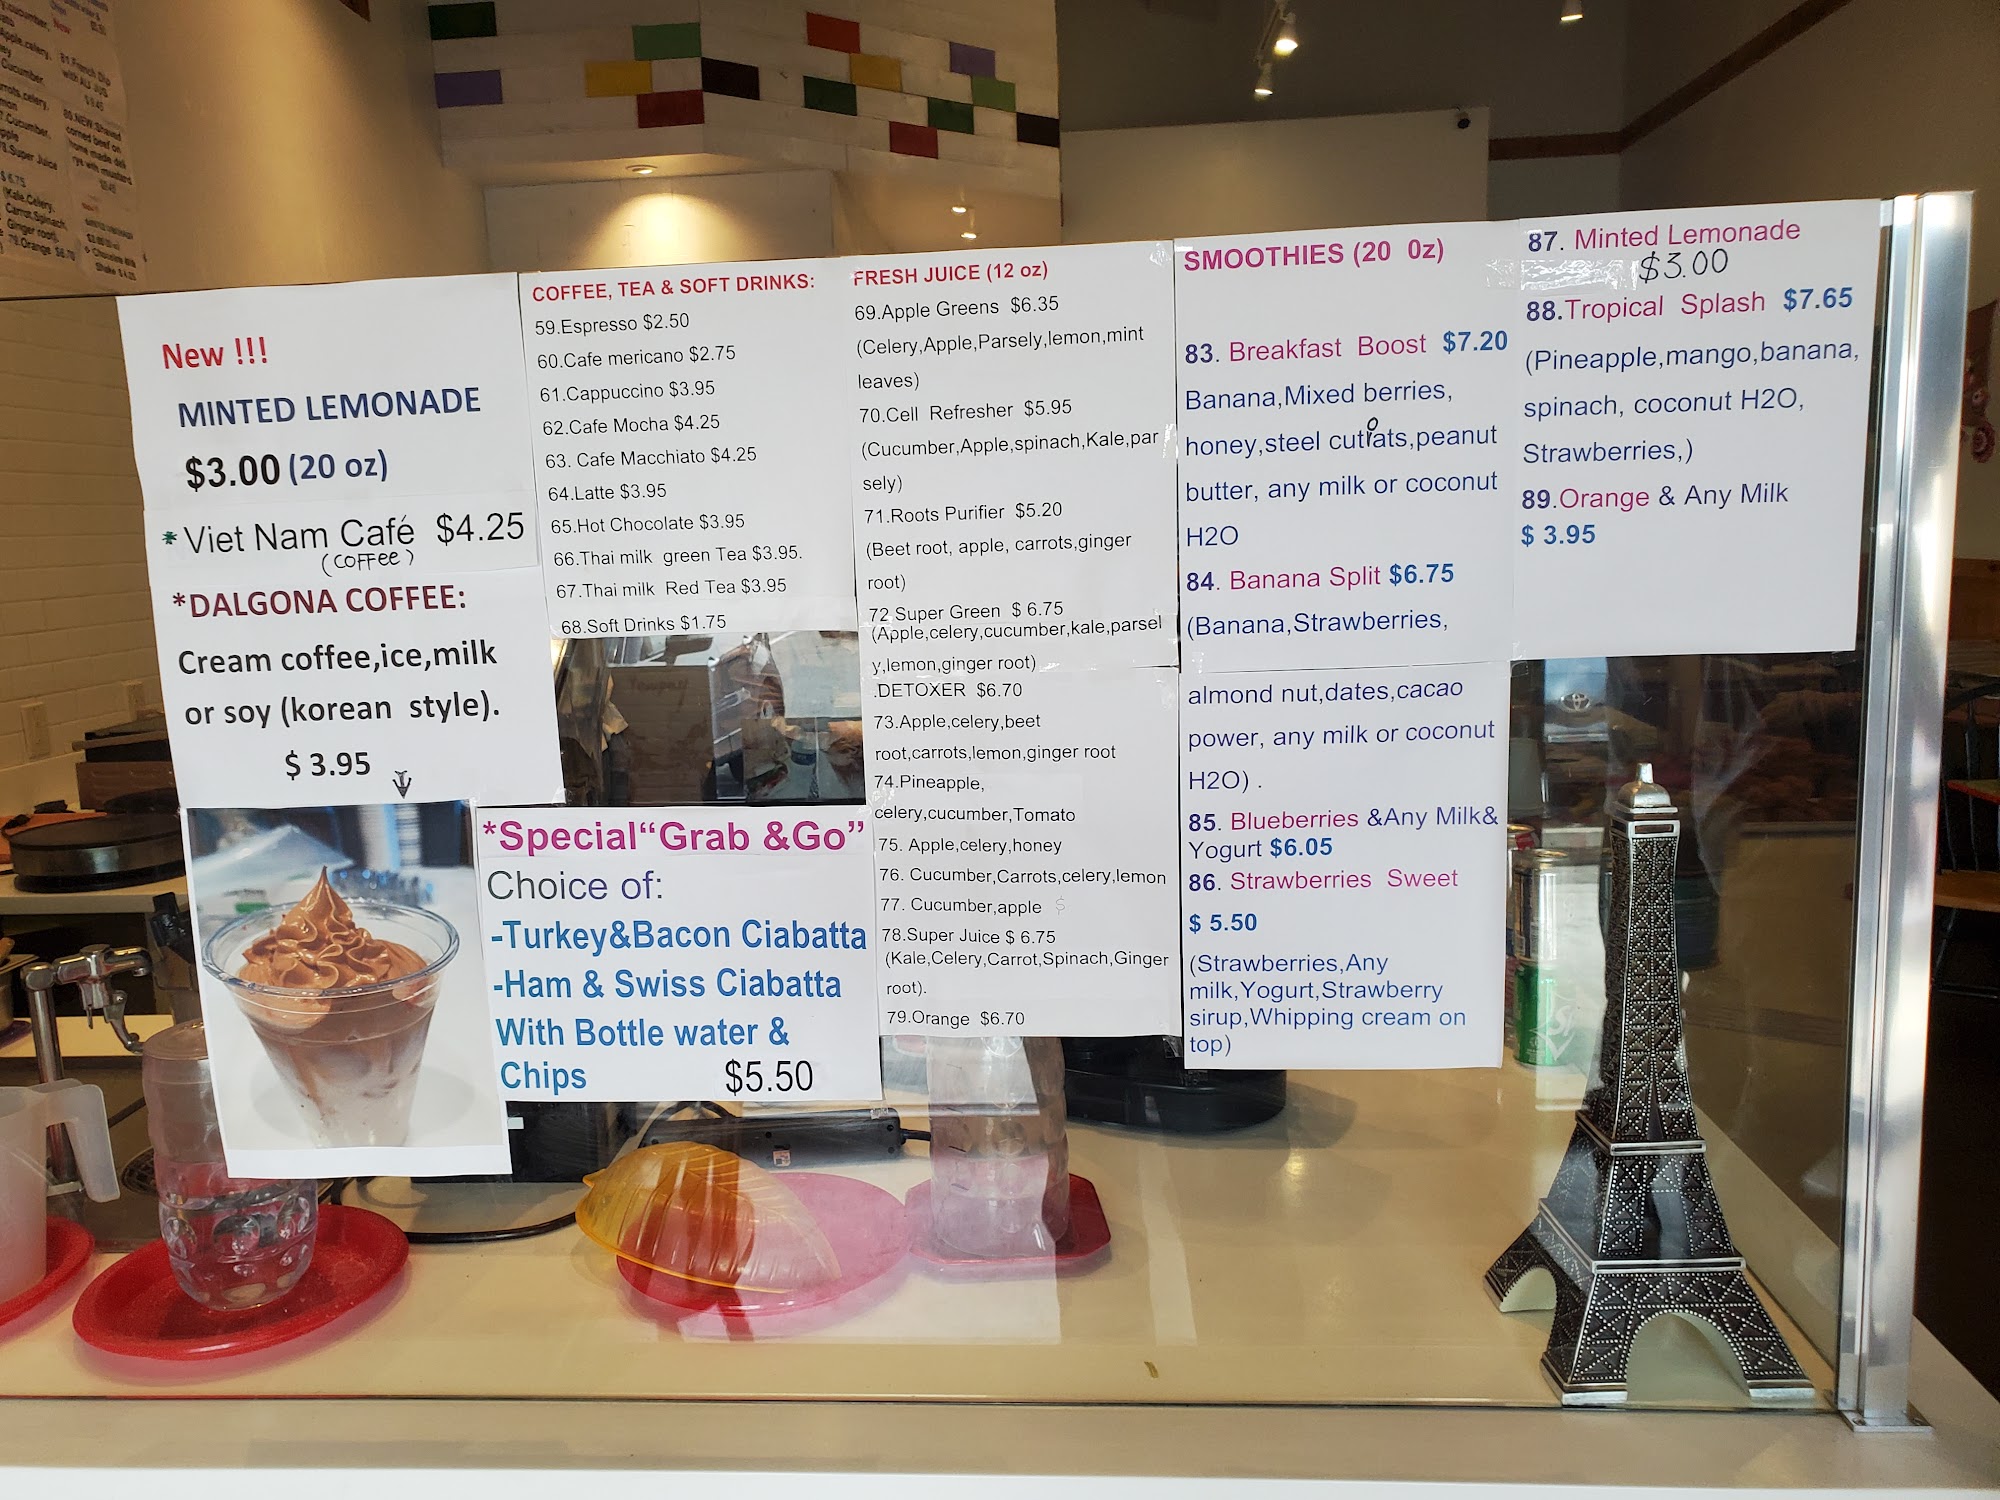 New !!!
MINTED LEMONADE
$3.00 (20 oz)
* Viet Nam Café $4.25
(COFFEE)
*DALGONA COFFEE:
Cream coffee,ice,milk
or soy (korean style).
$ 3.95
COFFEE, TEA & SOFT DRINKS:
59.Espresso $2.50
60.Cafe mericano $2.75
61.Cappuccino $3.95
62.Cafe Mocha $4.25
63. Cafe Macchiato $4.25
64.Latte $3.95
65.Hot Chocolate $3.95
66.Thai milk green Tea $3.95.
67.Thai milk Red Tea $3.95
68.Soft Drinks $1.75
*Special“Grab &Go”
Choice of:
-Turkey&Bacon Ciabatta
-Ham & Swiss Ciabatta
With Bottle water &
Chips $5.50
FRESH JUICE (12 oz)
69.Apple Greens $6.35
(Celery,Apple,Parsely,lemon,mint
leaves)
70.Cell Refresher $5.95
(Cucumber,Apple,spinach,Kale,par
sely)
71.Roots Purifier $5.20
(Beet root, apple, carrots,ginger
root)
72 Super Green $ 6.75
(Apple,celery,cucumber,kale,parsel
y,lemon,ginger root)
.DETOXER $6.70
73.Apple,celery,beet
root,carrots,lemon,ginger root
74.Pineapple,
celery,cucumber,Tomato
75. Apple,celery,honey
76. Cucumber,Carrots,celery,lemon
77. Cucumber,apple $
78.Super Juice $ 6.75
(Kale,Celery,Carrot,Spinach,Ginger
root).
79.Orange $6.70
SMOOTHIES (20 0z)
83. Breakfast Boost $7.20
Banana,Mixed berries,
honey,steel cut oats,peanut
butter, any milk or coconut
H2O
84. Banana Split $6.75
(Banana,Strawberries,
almond nut,dates,cacao
power, any milk or coconut
H2O) .
85. Blueberries &Any Milk&
Yogurt $6.05
86. Strawberries Sweet
$ 5.50
(Strawberries,Any
milk,Yogurt,Strawberry
sirup,Whipping cream on
top)
87. Minted Lemonade
$3.00
88.Tropical Splash $7.65
(Pineapple,mango,banana,
spinach, coconut H2O,
Strawberries,)
89.Orange & Any Milk
$ 3.95
81.French Dip
with AU JUS
$9.45
80.NEW:Shaved
corned beef on
home made deli
rye with mustard
Cucumber,
78.Super Juice
$6.75
(Kale,Celery,
Carrot,Spinach,
Ginger root).
79.Orange $6.70